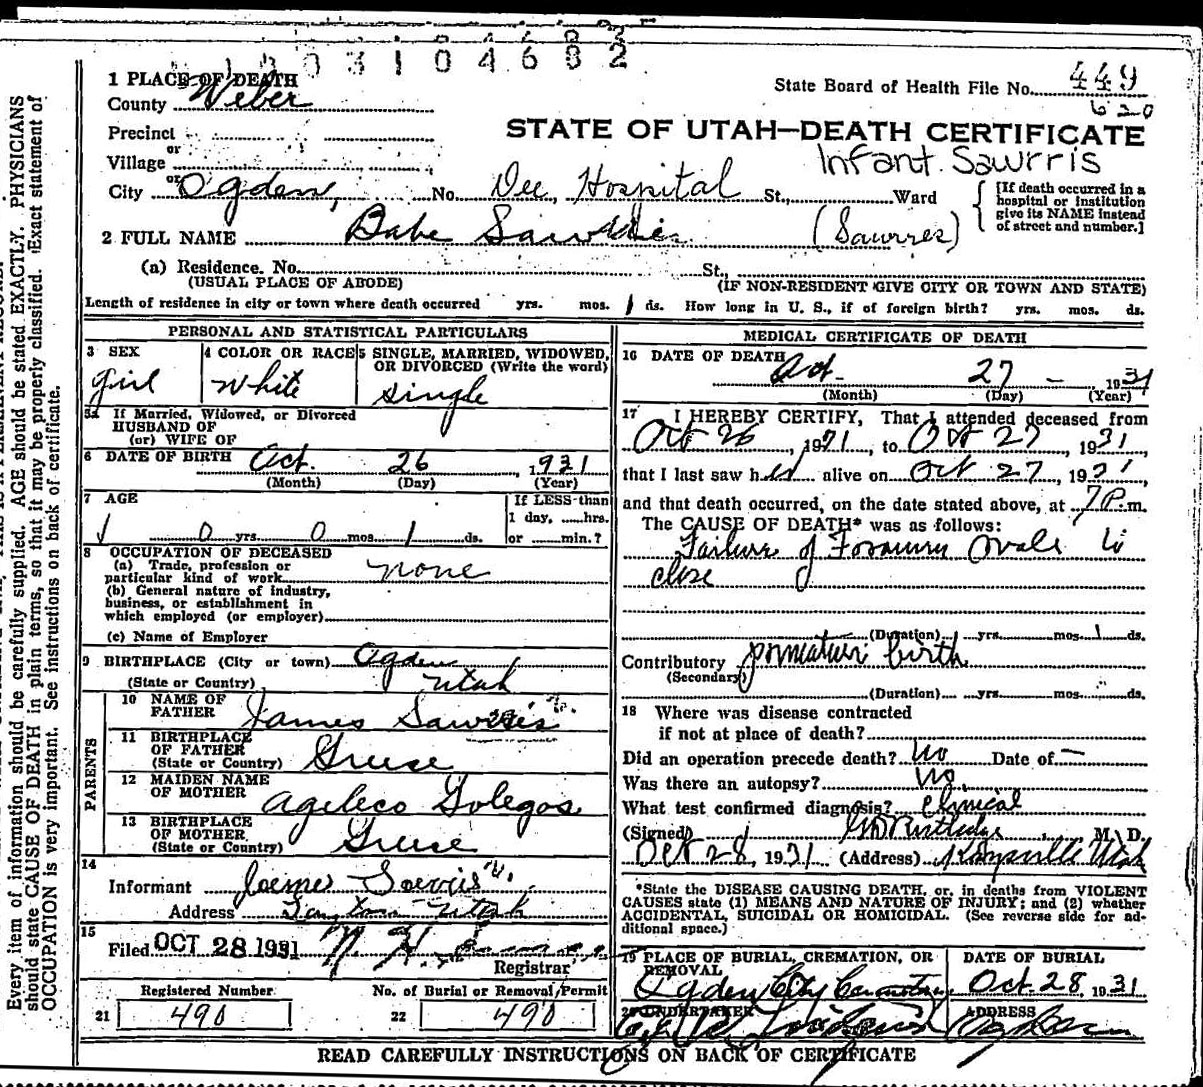 1 3 0 3 1 0 4 6 8 2
1 PLACE OF DEATH
State Board of Health File No. 449
620
County Weber
Precinct
or
Village
STATE OF UTAH—DEATH CERTIFICATE
Infant Sawrris
or
City Ogden, No. Dee Hospital St., Ward
[If death occurred in a hospital or institution give its NAME instead of street and number.]
2 FULL NAME Babe (Sawrres)
(a) Residence. No. St.,
(USUAL PLACE OF ABODE) (IF NON-RESIDENT GIVE CITY OR TOWN AND STATE)
Length of residence in city or town where death occurred yrs. mos. 1 ds. How long in U. S., if of foreign birth? yrs. mos. ds.
PERSONAL AND STATISTICAL PARTICULARS
3 SEX 4 COLOR OR RACE 5 SINGLE, MARRIED, WIDOWED, OR DIVORCED (Write the word)
girl White Single
5a If Married, Widowed, or Divorced
HUSBAND OF
(or) WIFE OF
6 DATE OF BIRTH Oct. 26, 1931
(Month) (Day) (Year)
7 AGE If LESS than
1 day, hrs.
0 yrs. 0 mos. 1 ds. or min.?
8 OCCUPATION OF DECEASED
(a) Trade, profession or
particular kind of work none
(b) General nature of industry,
business, or establishment in
which employed (or employer)
(c) Name of Employer
9 BIRTHPLACE (City or town) Ogden
(State or Country) Utah
PARENTS
10 NAME OF
FATHER James
11 BIRTHPLACE
OF FATHER
(State or Country) Greece
12 MAIDEN NAME
OF MOTHER Ageleco Golegos
13 BIRTHPLACE
OF MOTHER
(State or Country) Greece
14
Informant
Address Utah
15
Filed OCT 28 1931
Registrar
Registered Number No. of Burial or Removal Permit
21 490 22 490
MEDICAL CERTIFICATE OF DEATH
16 DATE OF DEATH
Oct. 27 - 1931
(Month) (Day) (Year)
17 I HEREBY CERTIFY, That I attended deceased from
Oct 26, 1931, to Oct 27 1931
that I last saw her alive on Oct 27, 1931
and that death occurred, on the date stated above, at 7 P. m.
The CAUSE OF DEATH* was as follows:
Failure of Foramen Ovale to
close
(Duration) yrs. mos. 1 ds.
Contributory premature birth
(Secondary)
(Duration) yrs. mos. ds.
18 Where was disease contracted
if not at place of death?
Did an operation precede death? No Date of —
Was there an autopsy? No
What test confirmed diagnosis? Clinical
(Signed) Rutledge M. D.
Oct 28, 1931 (Address) Kaysville Utah
*State the DISEASE CAUSING DEATH, or, in deaths from VIOLENT
CAUSES state (1) MEANS AND NATURE OF INJURY; and (2) whether
ACCIDENTAL, SUICIDAL OR HOMICIDAL. (See reverse side for ad-
ditional space.)
19 PLACE OF BURIAL, CREMATION, OR REMOVAL DATE OF BURIAL
Ogden City Cemetery Oct. 28, 1931
20 UNDERTAKER ADDRESS
Ogden
READ CAREFULLY INSTRUCTIONS ON BACK OF CERTIFICATE
Every item of information should be carefully supplied. AGE should be stated EXACTLY. PHYSICIANS
should state CAUSE OF DEATH in plain terms, so that it may be properly classified. Exact statement of
OCCUPATION is very important. See instructions on back of certificate.